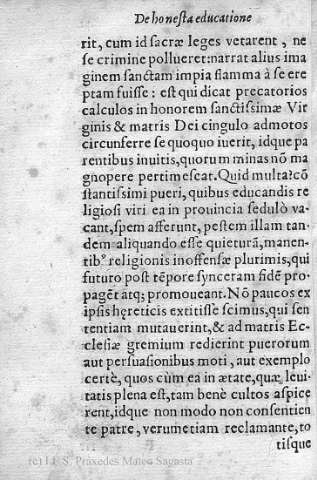 De honesta educatione
rit, cum id sacræ leges vetarent, ne
se crimine pollueret: narrat alius ima
ginem sanctam impia flamma à se ere
ptam fuisse: est qui dicat precatorios
calculos in honorem sanctissimæ Vir
ginis & matris Dei cingulo admotos
circunferre se quoquo iuerit, idque pa
rentibus inuitis, quorum minas nō ma
gnopere pertimescat. Quid multa? cō
stantissimi pueri, quibus educandis re
ligiosi viri ea in prouincia sedulò va-
cant, spem afferunt, pestem illam tan-
dem aliquando esse quieturā, manen-
tibꝰ religionis inoffensæ plurimis, qui
futuro post tēpore synceram fidē pro-
pagēt atq; promoueant. Nō paucos ex
ipsis hęreticis extitisse scimus, qui sen
tentiam mutauerint, & ad matris Ec-
clesiæ gremium redierint puerorum
aut persuasionibus moti, aut exemplo
certè, quos cùm ea in ætate, quæ leui-
tatis plena est, tam benè cultos aspice
rent, idque non modo non consentien
te patre, verumetiam reclamante, to
tisque
(c) I.E.S. Práxedes Mateo Sagasta